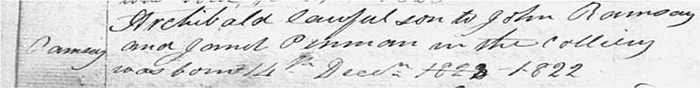 Archibald lawful son to John Ramsay
Ramsay and Janet Penman in the Colliery
was born 14th Decr. 1823 1822